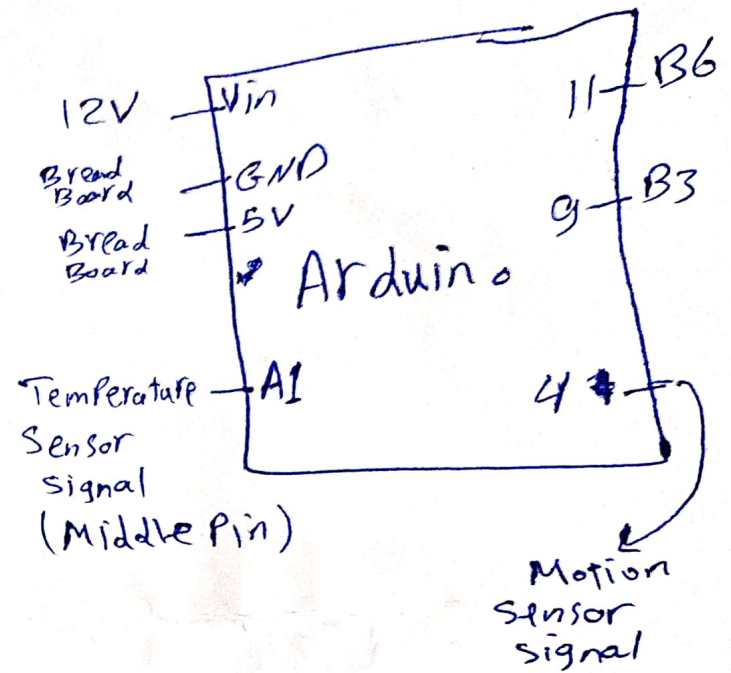 12V Vin
Bread
Board GND
Bread 5V
Board
Arduino
Temperature A1
Sensor
signal
(Middle Pin)
11 B6
9 B3
4
Motion
Sensor
signal